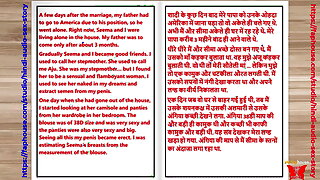 A few days after the marriage, my father had
to go to America due to his position, so he
went alone. Right now, Seema and I were
living alone in the house. My father was to
come only after about 3 months.
Gradually Seema and I became good friends. I
used to call her stepmother. She used to call
me Aju. She was my stepmother... but I found
her to be a sensual and flamboyant woman. I
used to see her naked in my dreams and
extract semen from my penis.
One day when she had gone out of the house,
I started looking at her cornhole and panties
from her wardrobe in her bedroom. The
blouse was of 38D size and was very sexy and
the panties were also very sexy and big.
Seeing all this my penis became erect. I was
estimating Seema's breasts from the
measurement of the blouse.
शादी के कुछ दिन बाद मेरे पापा को उनके ओहदा
अमेरिका में जाना पड़ा तो वो अकेले ही चले गए थे.
अभी मैं और सीमा अकेले ही घर में रह रहे थे. मेरे
पापा करीब 3 महीने बाद ही आने वाले थे.
धीरे धीरे मैं और सीमा अच्छे दोस्त बन गए थे. मैं
उसको माँ कहकर बुलाता था. वह मुझे अजू कहकर
बुलाती थी. वो थी तो मेरी सौतेली मां … लेकिन मुझे
तो एक कामुक और चटकीली औरत लगती थी. मैं
उसको सपनों में नंगी देखा करता था और अपने
लण्ड का वीर्य निकालता था.
एक दिन जब वो घर से बाहर गई हुई थी, तब मैं
उसके शयनकक्ष में उसकी अलमारी से उसके
अंगिया कच्छी देखने लगा. अंगिया 38डी माप की
थी और बड़ी ही कामुक थी और कच्छी भी काफी
कामुक और बड़ी थी. यह सब देखकर मेरा लण्ड
खड़ा हो गया. अंगिया की माप से मैं सीमा के स्तनों
का अंदाज़ा लगा रहा था.